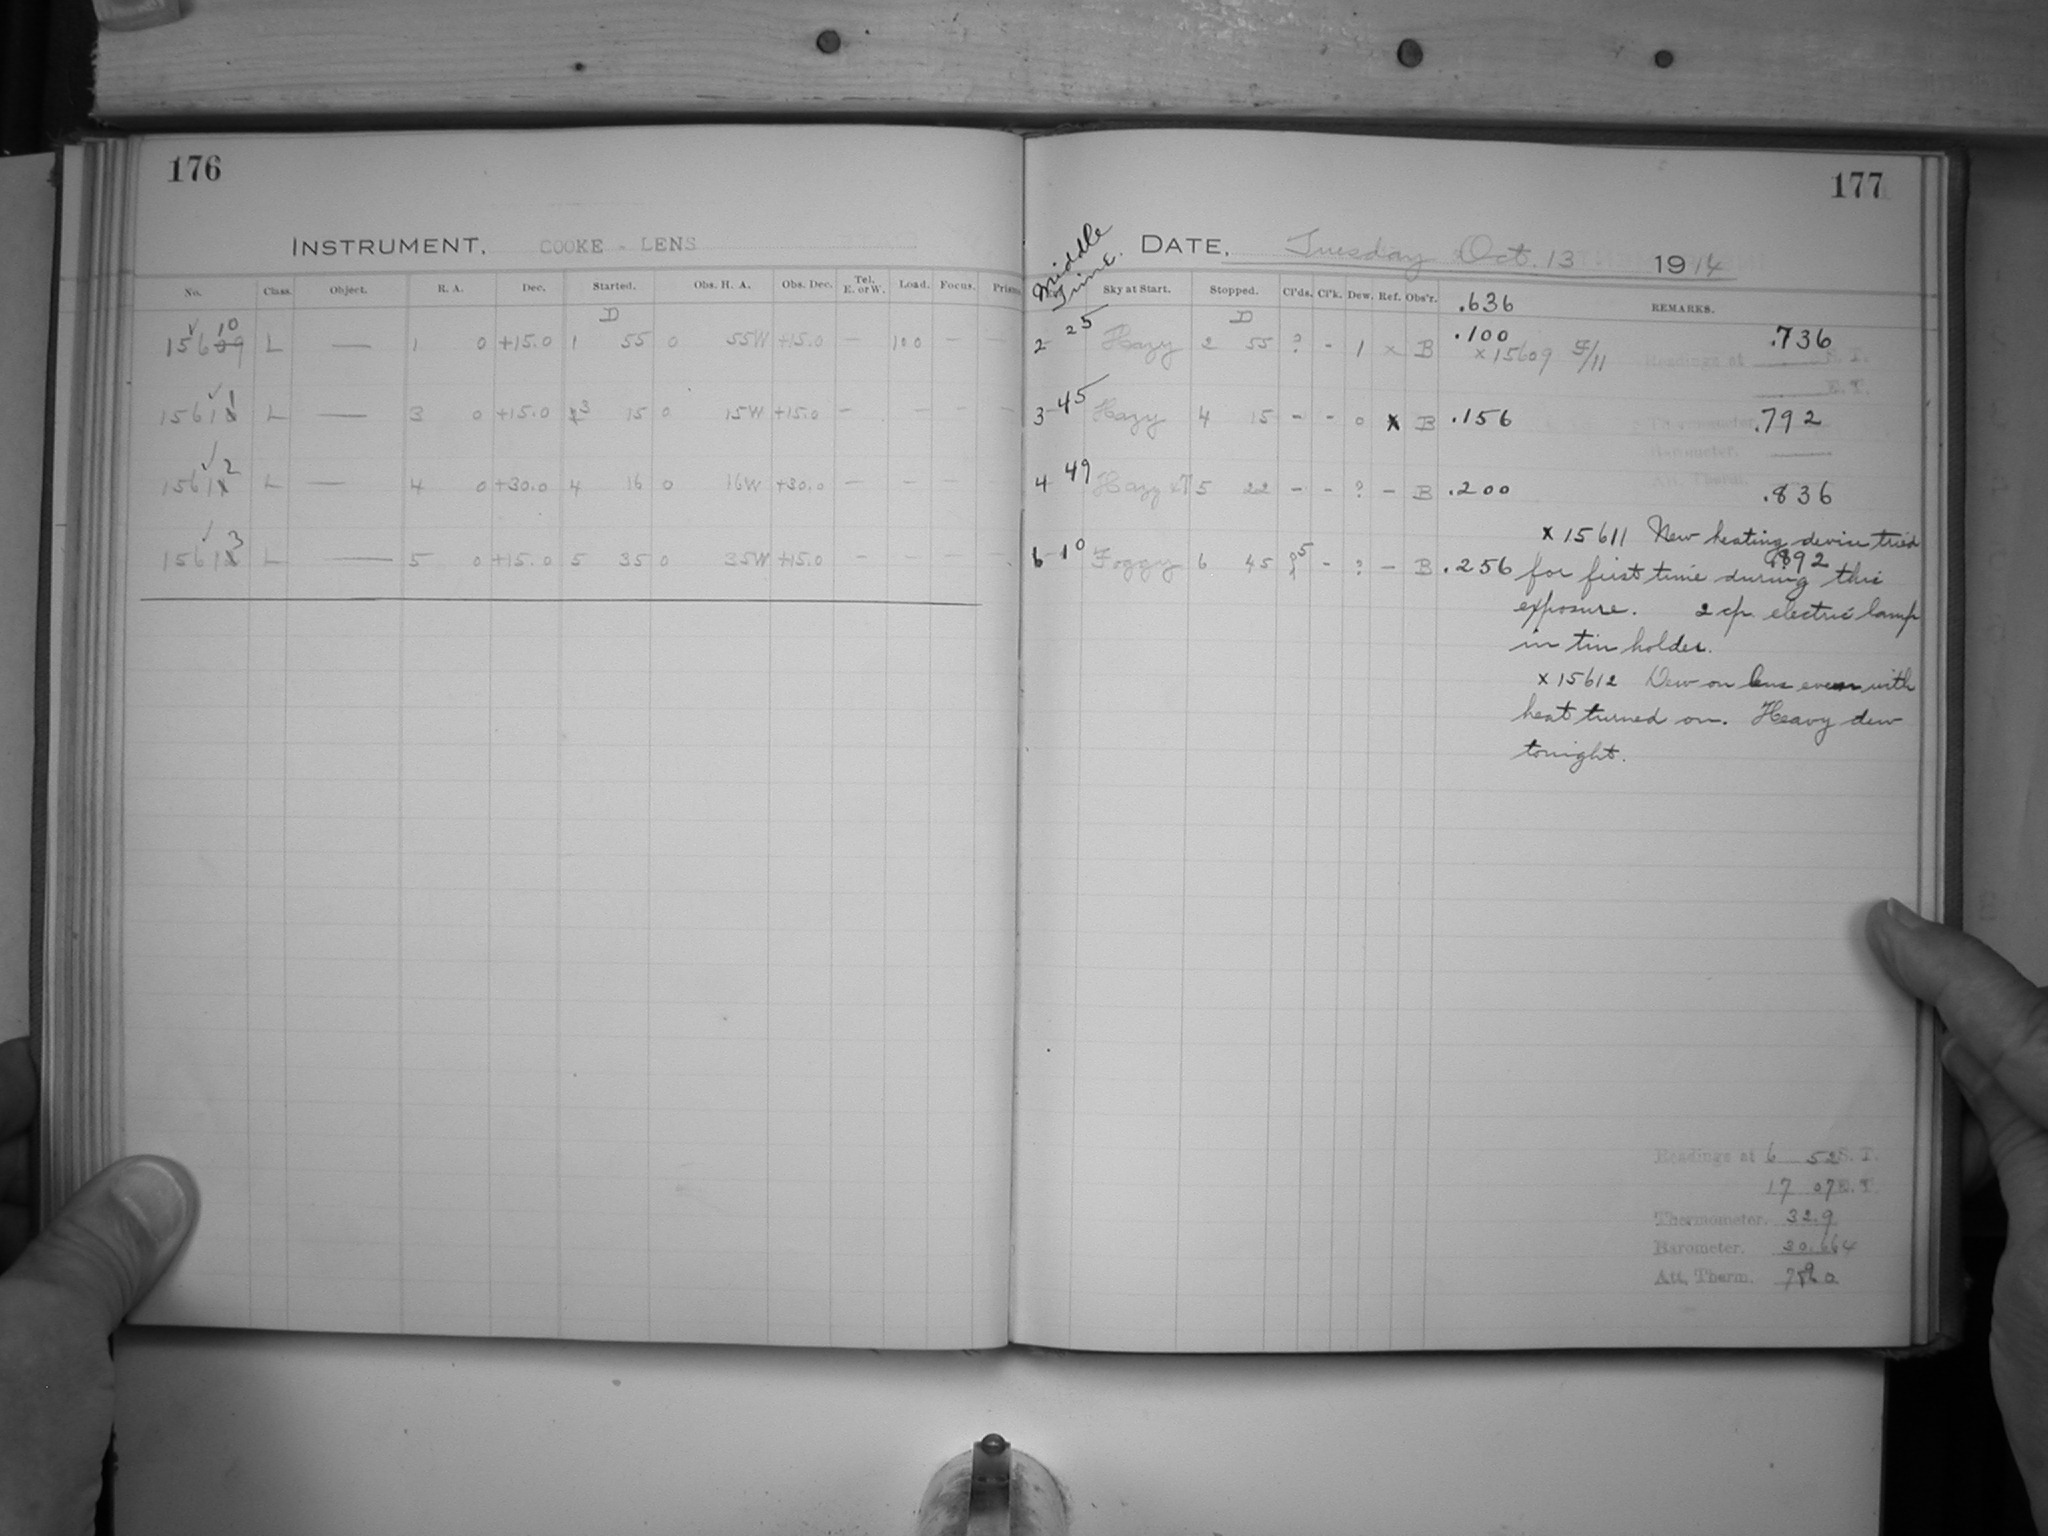 176
177
INSTRUMENT, COOKE - LENS
Middle Time.
DATE, Tuesday Oct. 13 1914
No. Class. Object. R. A. Dec. Started. Obs. H. A. Obs. Dec. Tel. E. or W. Load. Focus. Prism
Sky at Start. Stopped. Cl'ds. Cl'k. Dew. Ref. Obs'r. .636 REMARKS.
D
D
15609 10 L — 1 0 +15.0 1 55 0 55W +15.0 — 100 — — 2-25 Hazy 2 55 ? - 1 x B .100 .736
x 15609 5/11
Readings at S. T.
E. T.
1561 1 L — 3 0 +15.0 3 15 0 15W +15.0 — — — — 3-45 Hazy 4 15 - - 0 x B .156 .792
Thermometer.
Barometer.
Att. Therm.
1561 2 L — 4 0 +30.0 4 16 0 16W +30.0 — — — — 4 49 Hazy 5 22 - - ? - B .200 .836
1561 3 L — 5 0 +15.0 5 35 0 35W +15.0 — — — — 6-10 Foggy 6 45 5 - ? - B .256 .892
x 15611 New heating devise tried
for first time during this
exposure. 2 cp. electric lamp
in tin holder.
x 15612 Dew on lens even with
heat turned on. Heavy dew
tonight.
Readings at 6 52 S. T.
17 07 E. T.
Thermometer. 32.9
Barometer. 30.664
Att. Therm.